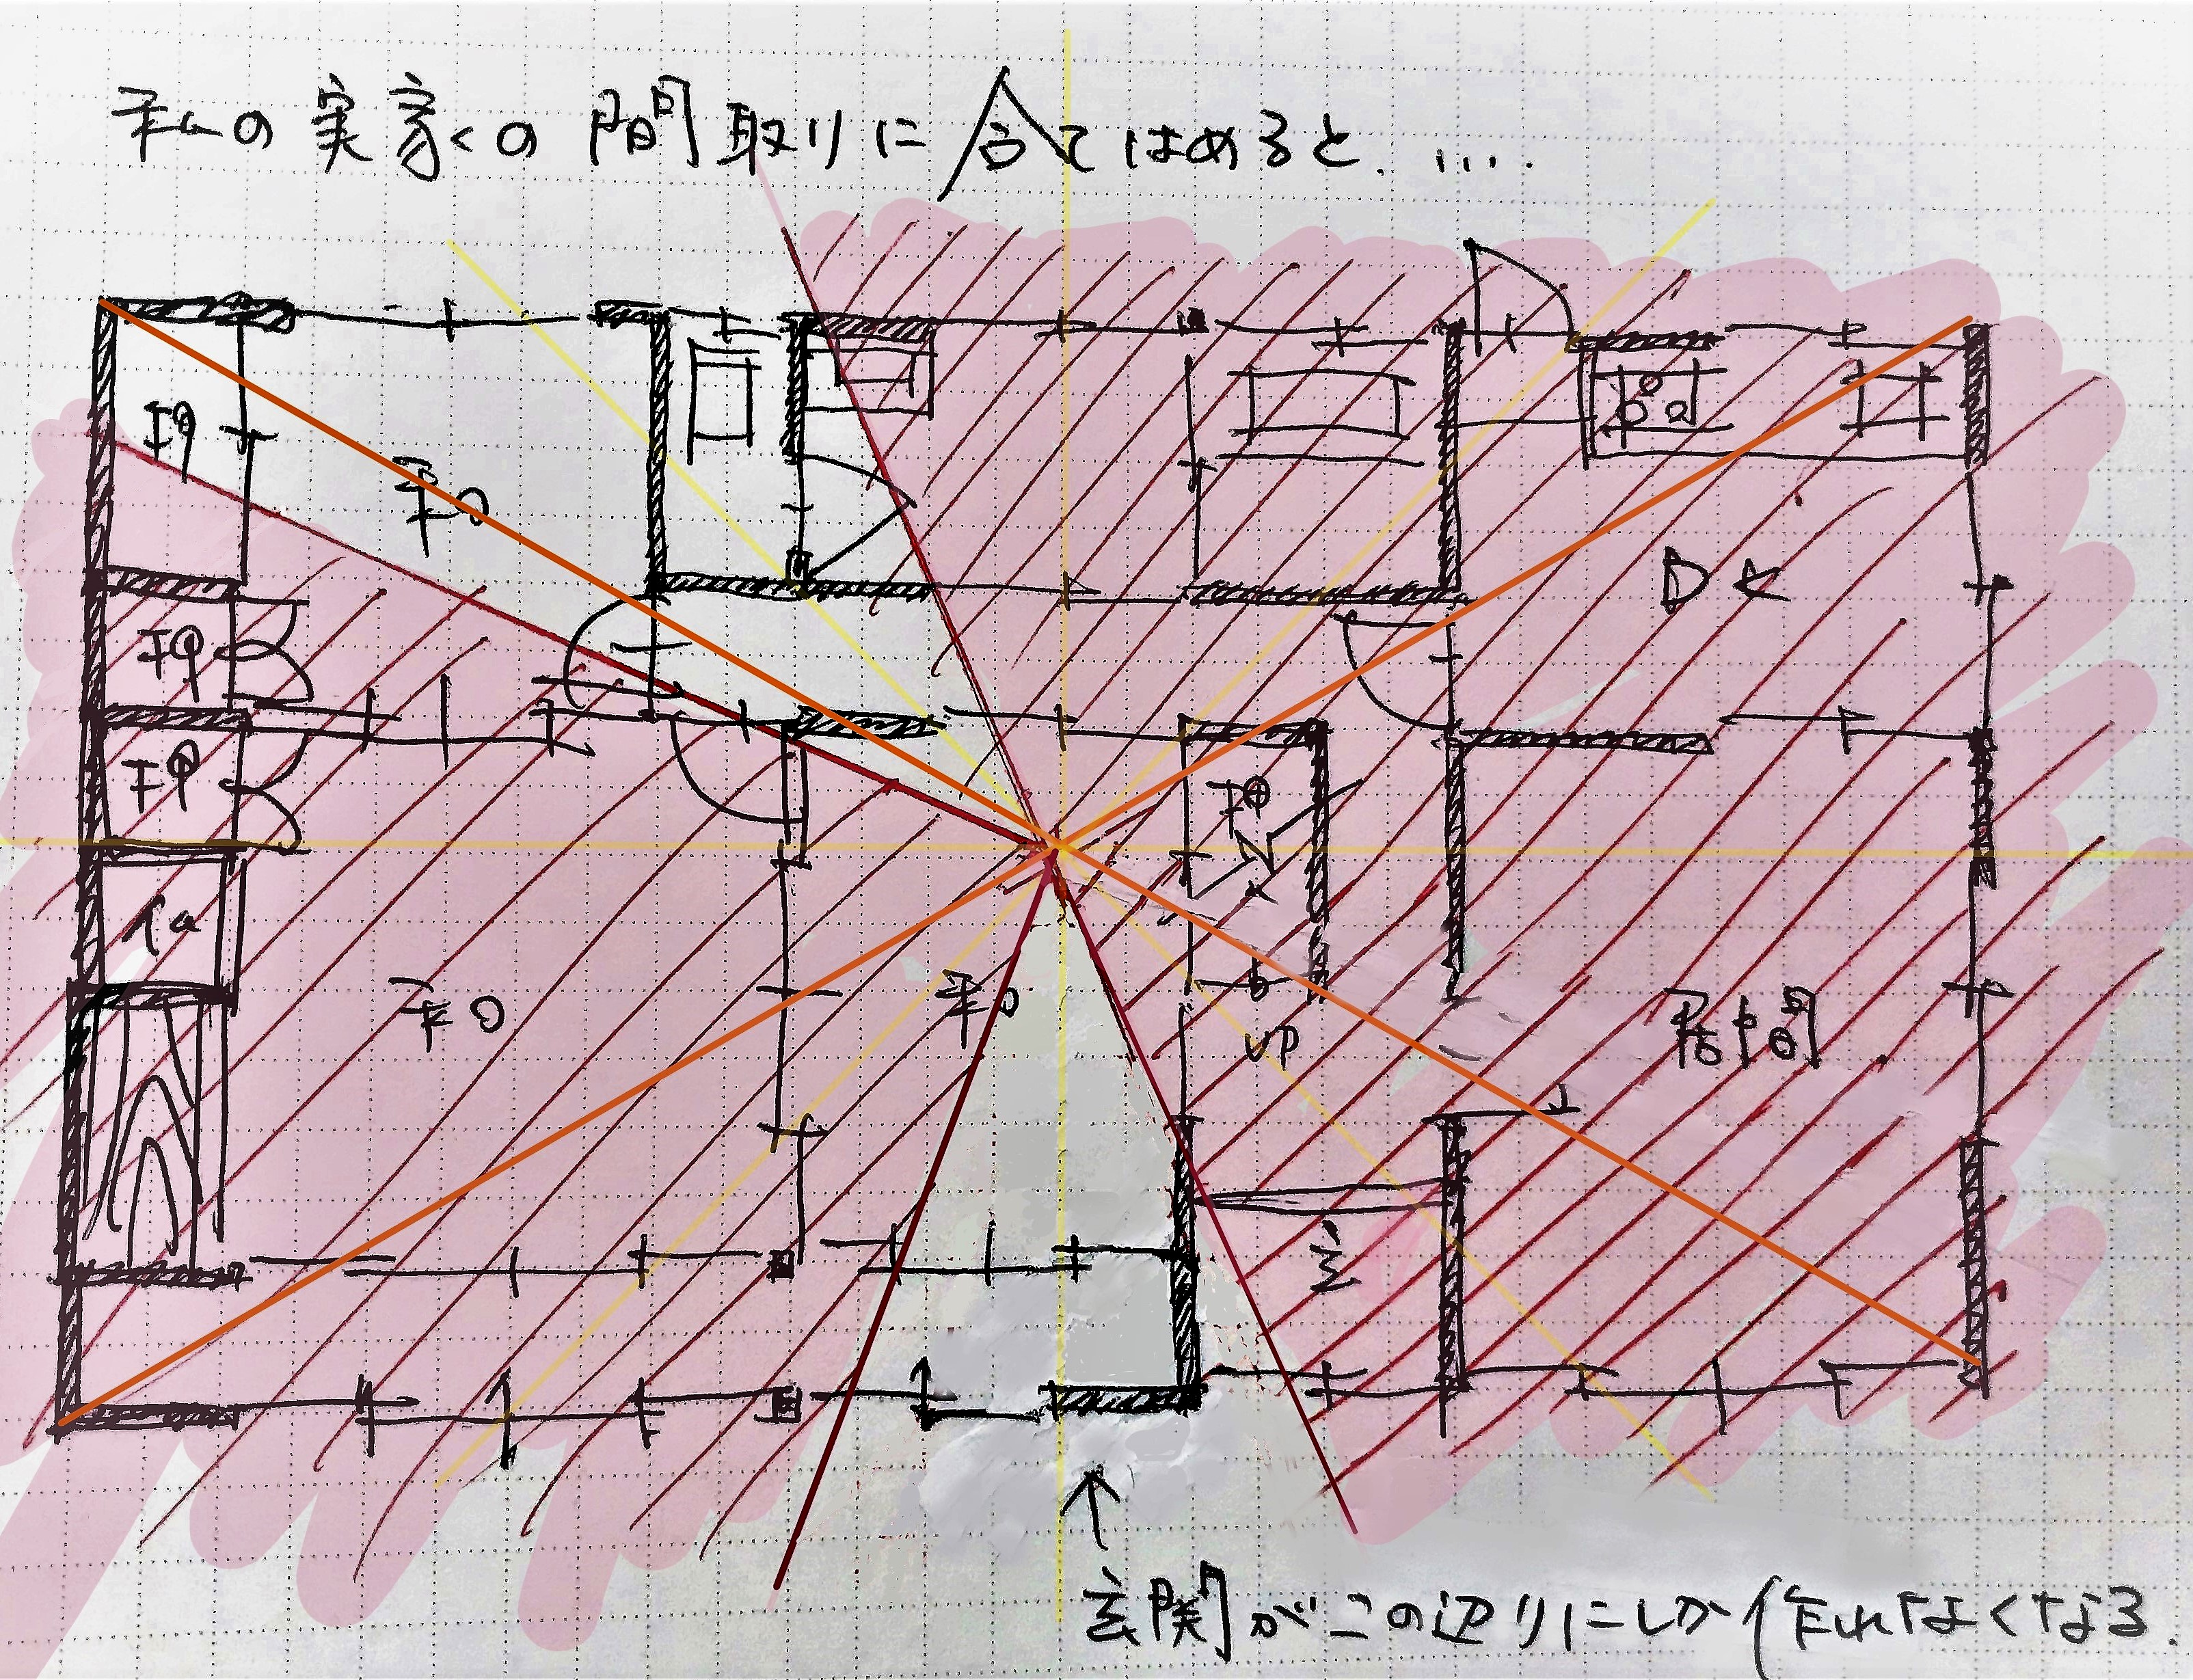 私の実家の間取りに合てはめると.....
押
和
DK
押
押
押
仏
和
和
UP
居間
玄
玄関がこの辺りにしか作れなくなる.